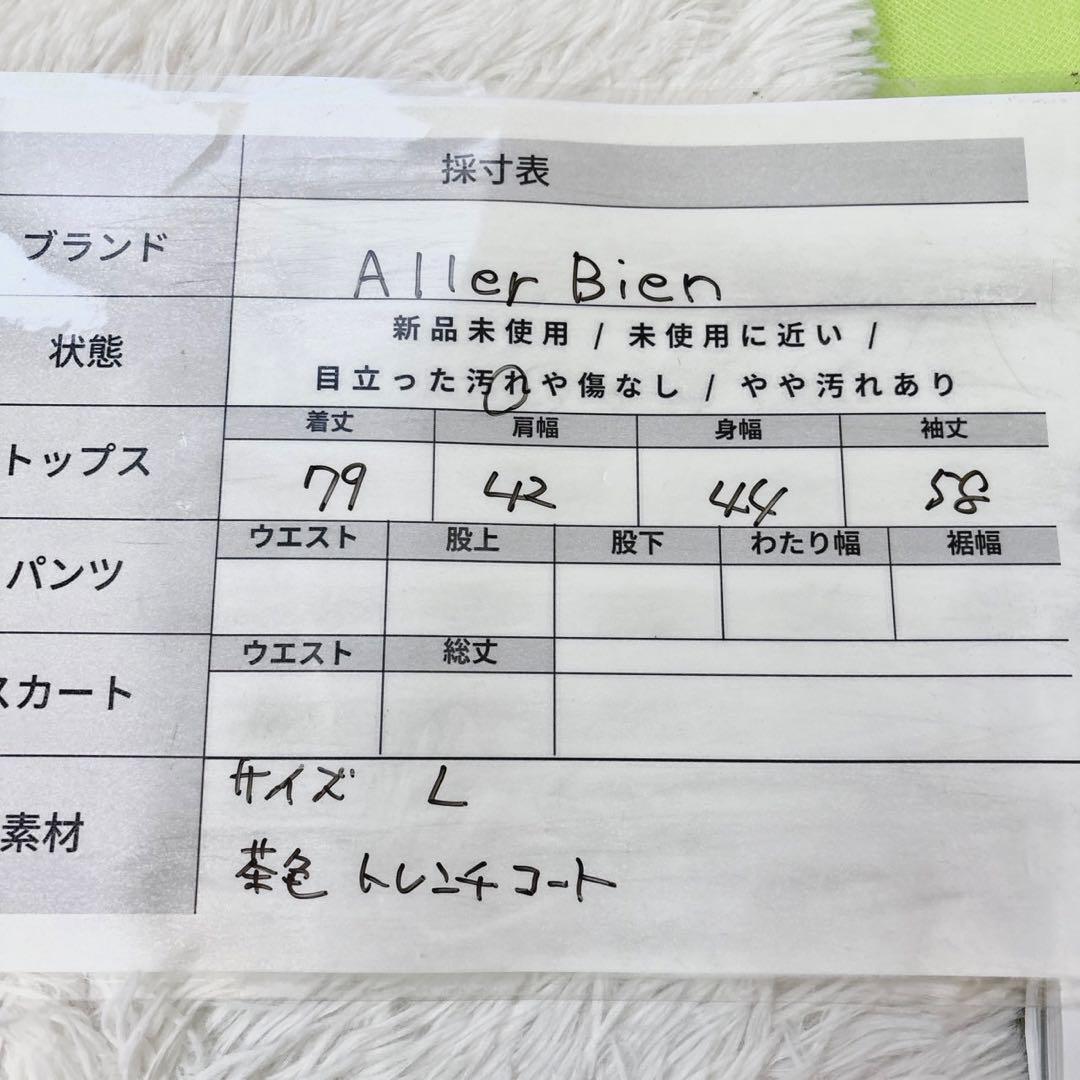 採寸表
ブランド Aller Bien
状態 新品未使用 / 未使用に近い /
目立った汚れや傷なし / やや汚れあり
トップス 着丈 肩幅 身幅 袖丈
79 42 44 58
パンツ ウエスト 股上 股下 わたり幅 裾幅
スカート ウエスト 総丈
素材 サイズ L
茶色 トレンチコート